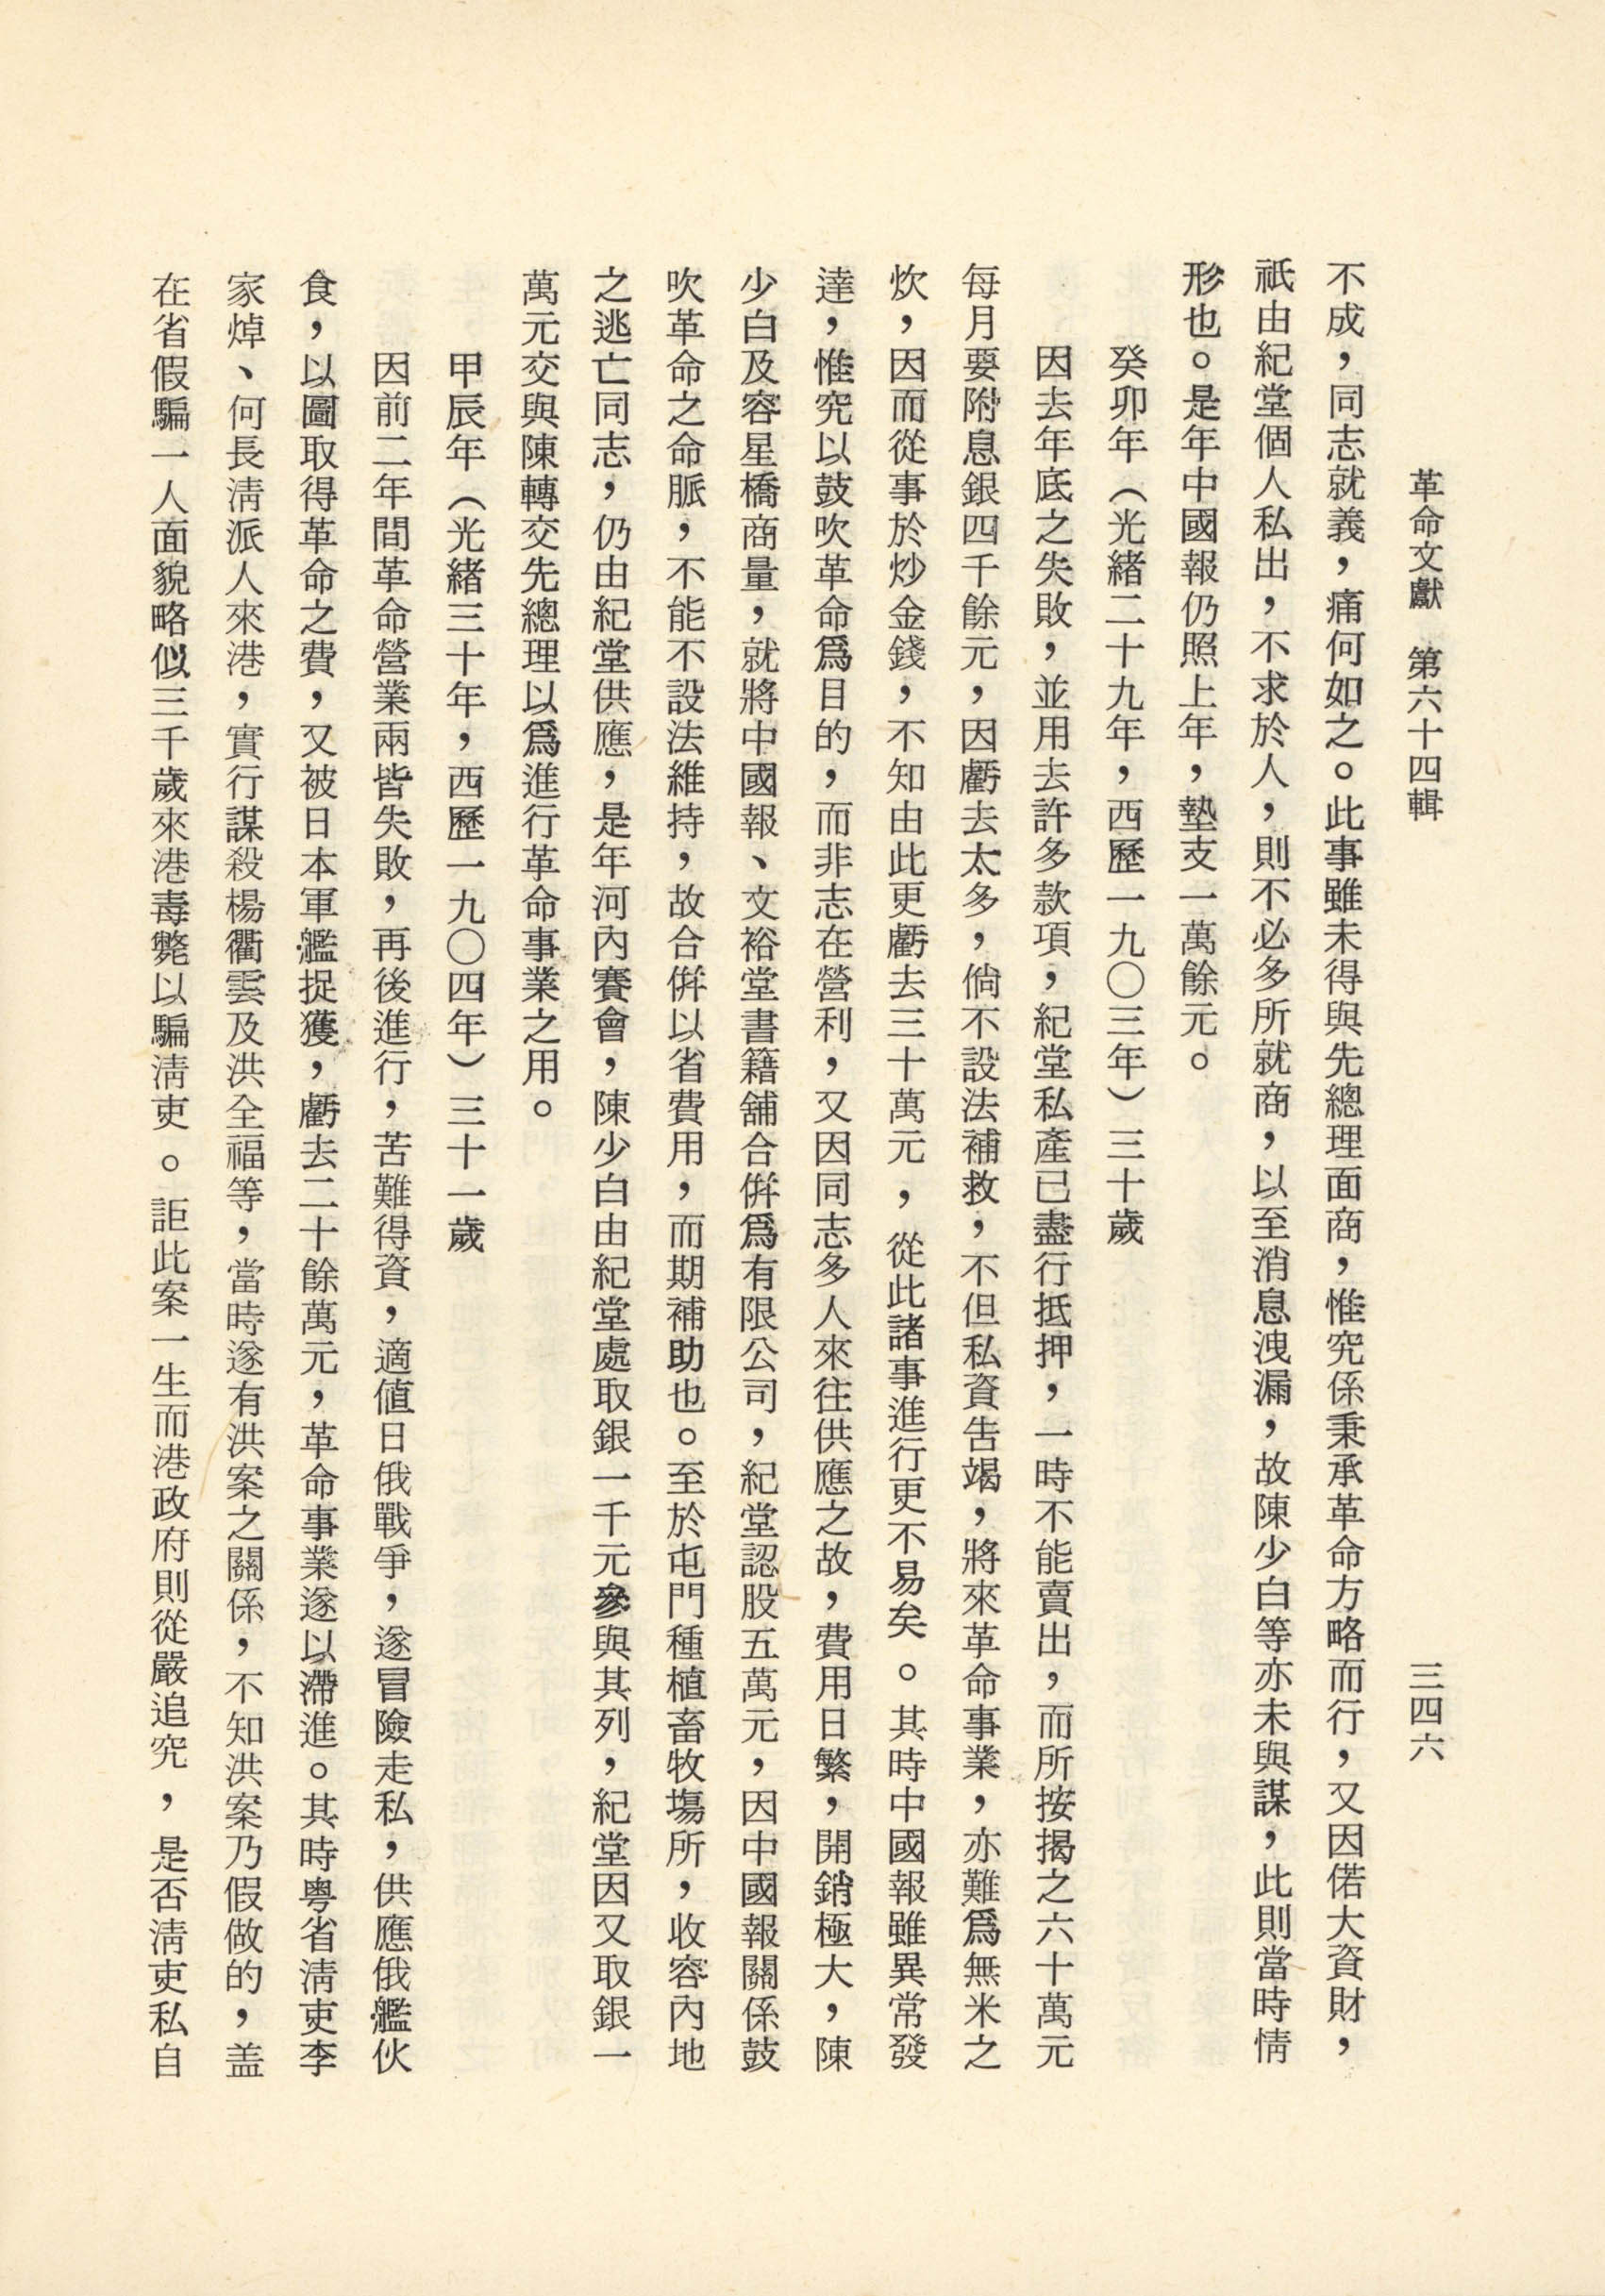 革命文獻　第六十四輯　三四六
不成，同志就義，痛何如之。此事雖未得與先總理面商，惟究係秉承革命方略而行，又因偌大資財，
祇由紀堂個人私出，不求於人，則不必多所就商，以至消息洩漏，故陳少白等亦未與謀，此則當時情
形也。是年中國報仍照上年，墊支一萬餘元。
癸卯年（光緒二十九年，西歷一九〇三年）三十歲
因去年底之失敗，並用去許多款項，紀堂私產已盡行抵押，一時不能賣出，而所按揭之六十萬元
每月要附息銀四千餘元，因虧去太多，倘不設法補救，不但私資告竭，將來革命事業，亦難爲無米之
炊，因而從事於炒金錢，不知由此更虧去三十萬元，從此諸事進行更不易矣。其時中國報雖異常發
達，惟究以鼓吹革命爲目的，而非志在營利，又因同志多人來往供應之故，費用日繁，開銷極大，陳
少白及容星橋商量，就將中國報、文裕堂書籍舖合併爲有限公司，紀堂認股五萬元，因中國報關係鼓
吹革命之命脈，不能不設法維持，故合併以省費用，而期補助也。至於屯門種植畜牧塲所，收容內地
之逃亡同志，仍由紀堂供應，是年河內賽會，陳少白由紀堂處取銀一千元參與其列，紀堂因又取銀一
萬元交與陳轉交先總理以爲進行革命事業之用。
甲辰年（光緒三十年，西歷一九〇四年）三十一歲
因前二年間革命營業兩皆失敗，再後進行，苦難得資，適值日俄戰爭，遂冒險走私，供應俄艦伙
食，以圖取得革命之費，又被日本軍艦捉獲，虧去二十餘萬元，革命事業遂以滯進。其時粵省淸吏李
家焯、何長淸派人來港，實行謀殺楊衢雲及洪全福等，當時遂有洪案之關係，不知洪案乃假做的，盖
在省假騙一人面貌略似三千歲來港毒斃以騙淸吏。詎此案一生而港政府則從嚴追究，是否淸吏私自